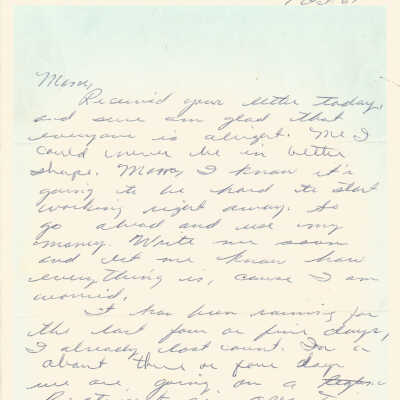 Mom,
Received your letter today,
and sure am glad that
everyone is alright. Me I
could never be in better
shape. Mom, I know it's
going to be hard to start
working right away. So
go ahead and use my
money. Write me soon
and let me know how
everything is, cause I am
worried.
It has been raining for
the last four or five days,
I already lost count. In a
about three or four days
we are going on a